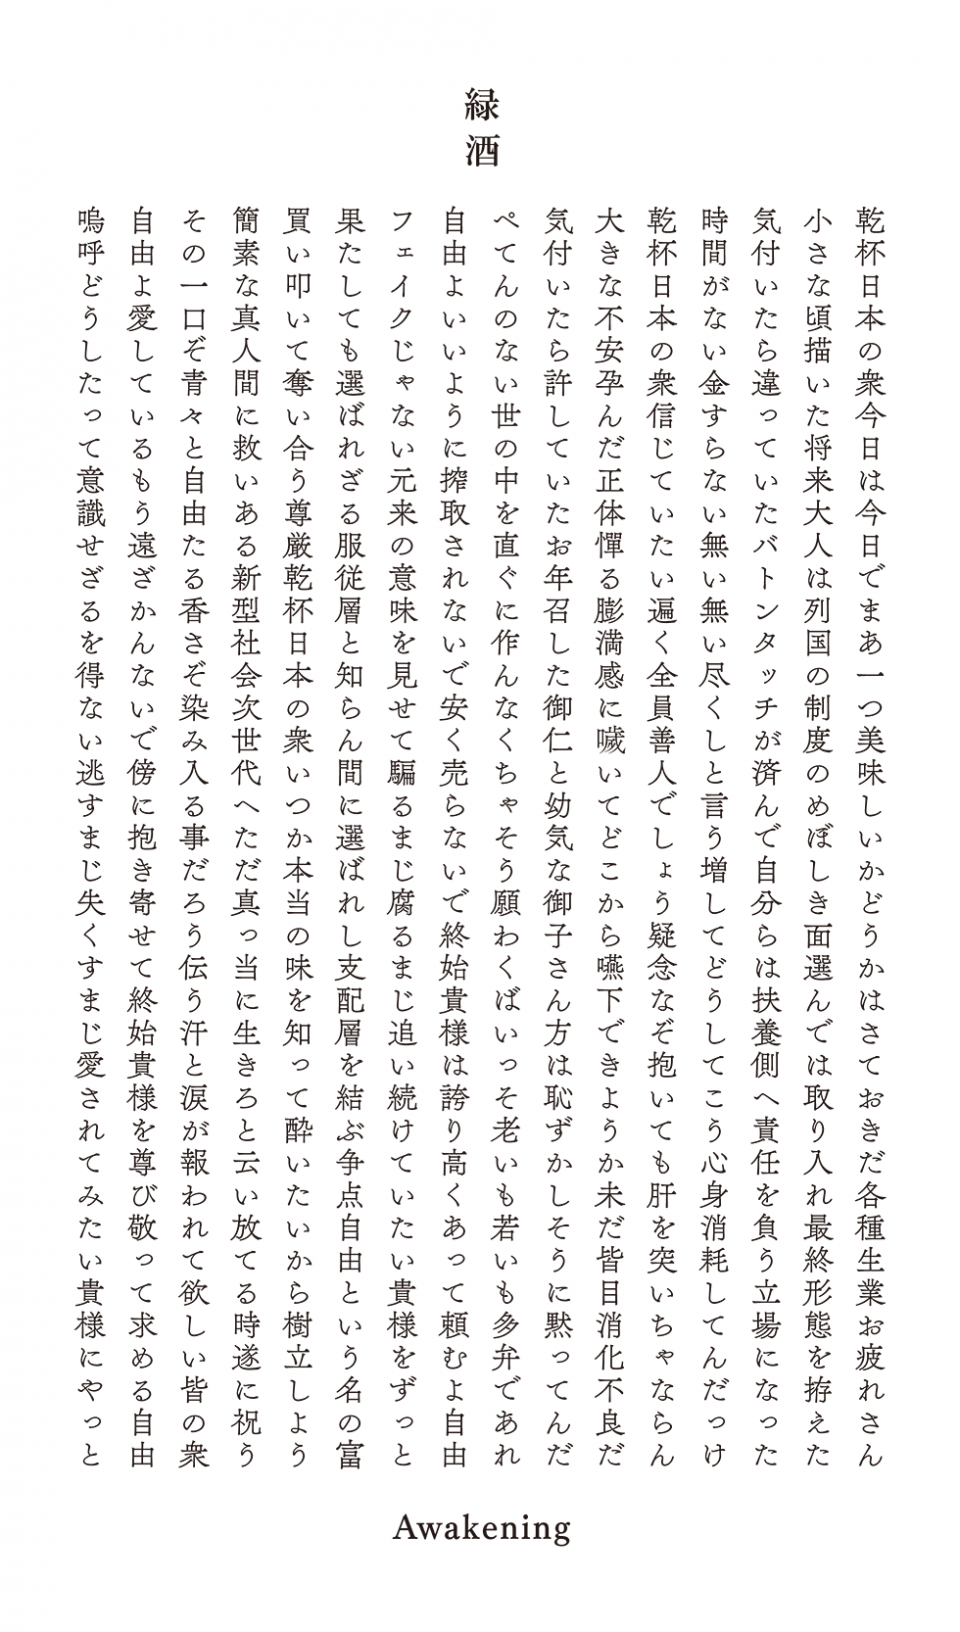 緑酒
乾杯日本の衆今日は今日でまあ一つ美味しいかどうかはさておきだ各種生業お疲れさん
小さな頃描いた将来大人は列国の制度のめぼしき面選んでは取り入れ最終形態を拵えた
気付いたら違っていたバトンタッチが済んで自分らは扶養側へ責任を負う立場になった
時間がない金すらない無い無い尽くしと言う増してどうしてこう心身消耗してんだっけ
乾杯日本の衆信じていたい遍く全員善人でしょう疑念なぞ抱いても肝を突いちゃならん
大きな不安孕んだ正体憚る膨満感に噦いてどこから嚥下できようか未だ皆目消化不良だ
気付いたら許していたお年召した御仁と幼気な御子さん方は恥ずかしそうに黙ってんだ
ぺてんのない世の中を直ぐに作んなくちゃそう願わくばいっそ老いも若いも多弁であれ
自由よいいように搾取されないで安く売らないで終始貴様は誇り高くあって頼むよ自由
フェイクじゃない元来の意味を見せて騙るまじ腐るまじ追い続けていたい貴様をずっと
果たしても選ばれざる服従層と知らん間に選ばれし支配層を結ぶ争点自由という名の富
買い叩いて奪い合う尊厳乾杯日本の衆いつか本当の味を知って酔いたいから樹立しよう
簡素な真人間に救いある新型社会次世代へただ真っ当に生きろと云い放てる時遂に祝う
その一口ぞ青々と自由たる香さぞ染み入る事だろう伝う汗と涙が報われて欲しい皆の衆
自由よ愛しているもう遠ざかんないで傍に抱き寄せて終始貴様を尊び敬って求める自由
嗚呼どうしたって意識せざるを得ない逃すまじ失くすまじ愛されてみたい貴様にやっと
Awakening